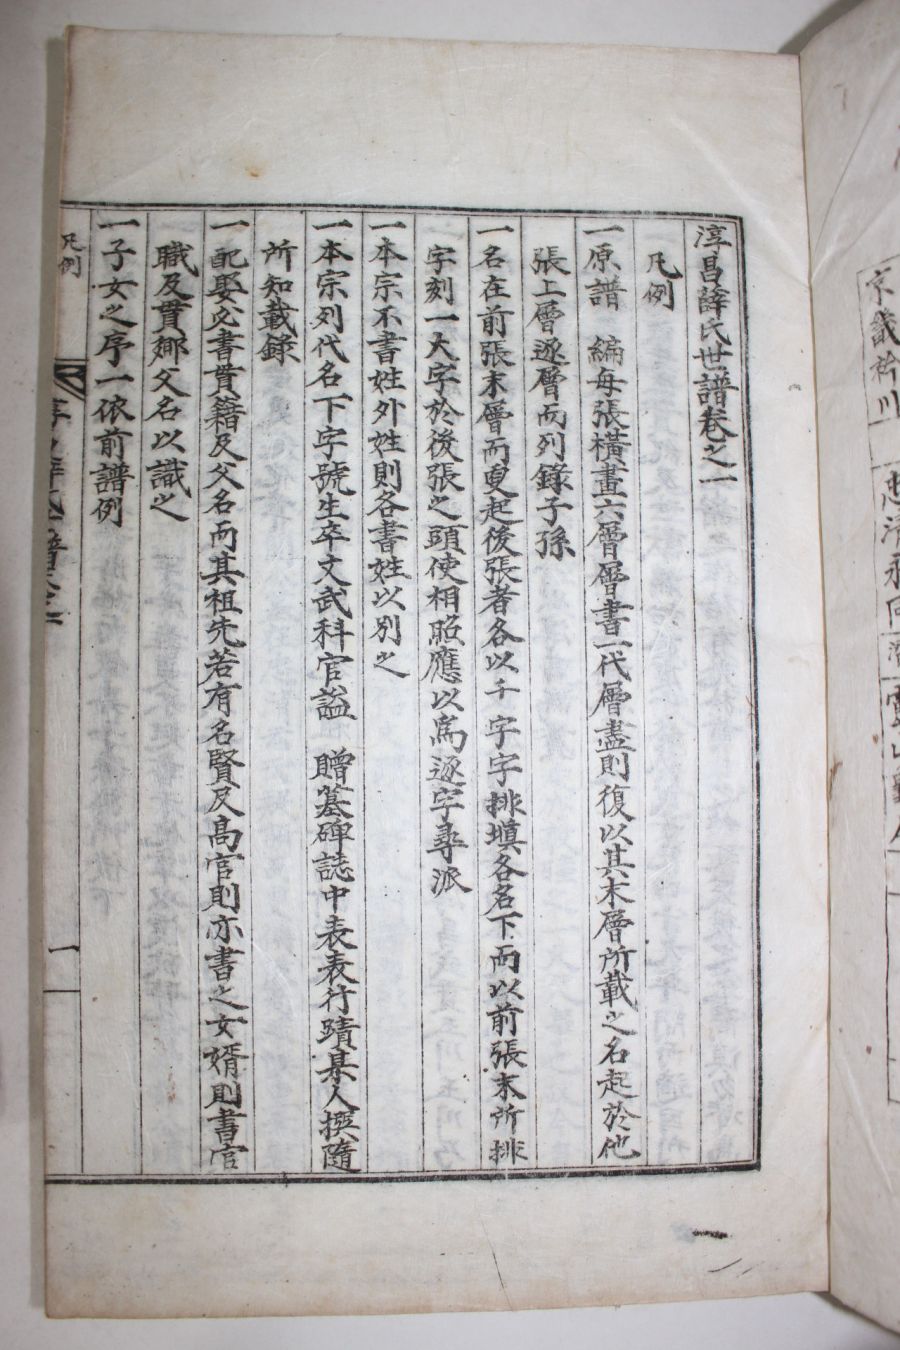 淳昌薛氏世譜卷之一
凡例
一原譜 編每張橫畫六層層書一代層盡則復以其末層所載之名起於他
張上層逐層而列錄子孫
一名在前張末層而更起後張者各以千字字排塡各名下而以前張末所排
字刻一大字於後張之頭使相照應以爲逐字尋派
一本宗不書姓外姓則各書姓以別之
一本宗列代名下字號生卒文武科官諡 贈墓碑誌中表表行蹟某人撰隨
所知載錄
一配娶必書貫籍及父名而其祖先若有名賢及高官則亦書之女婿則書官
職及貫鄕父名以識之
一子女之序一依前譜例
凡例
一